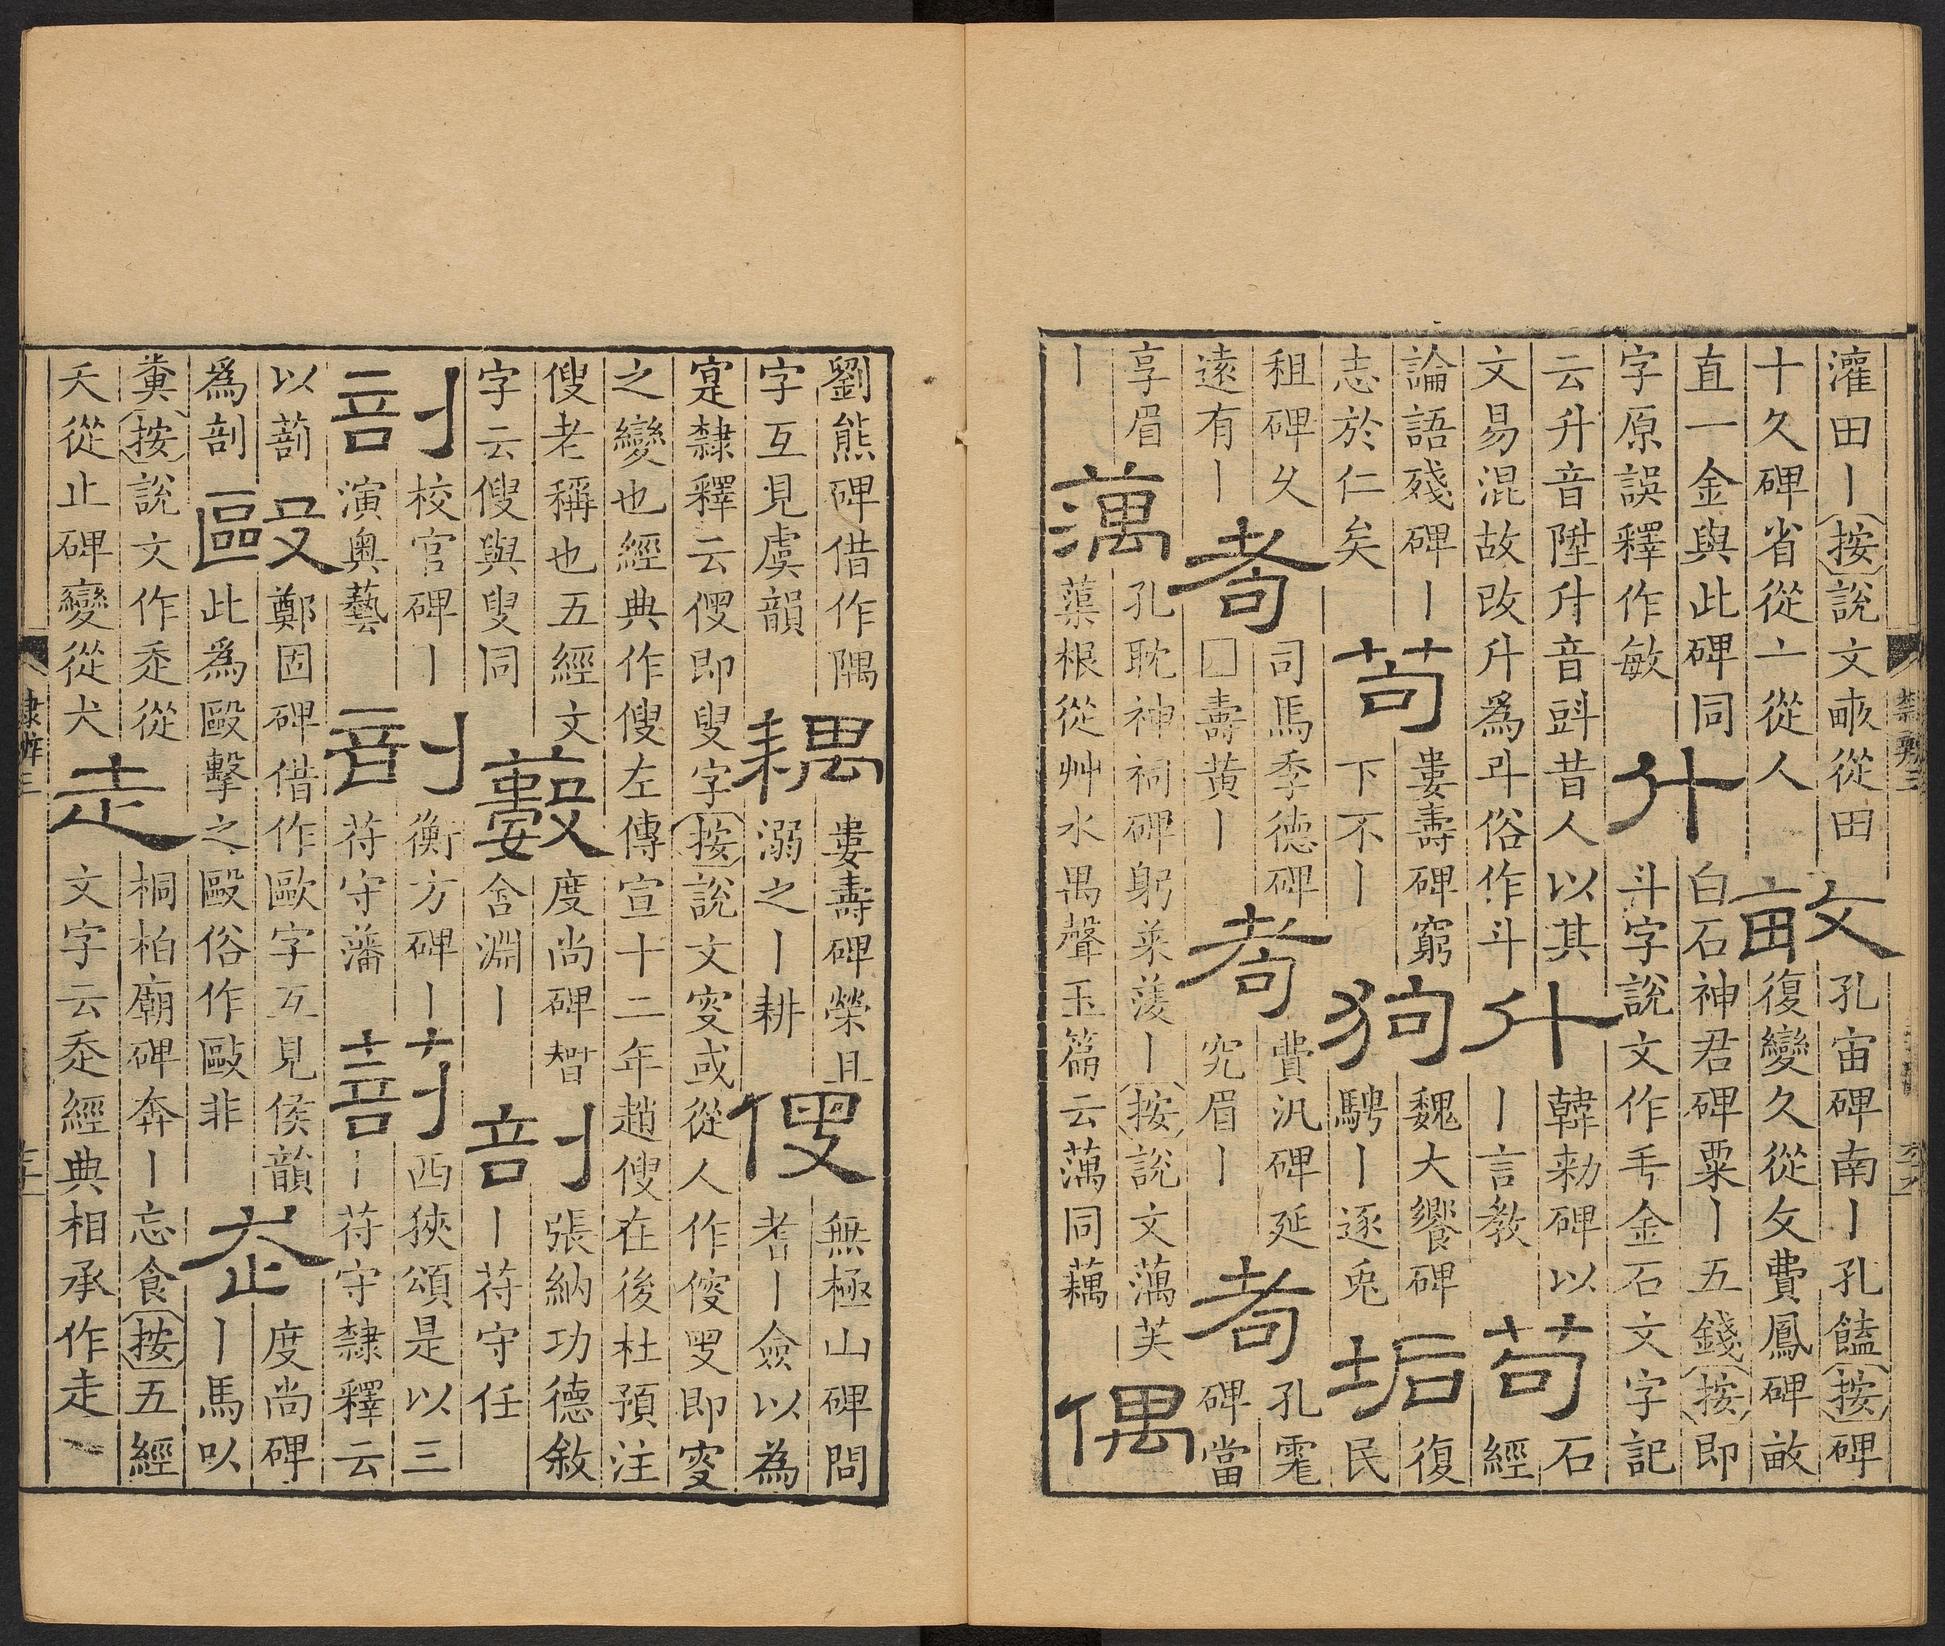 灌田丨按說文畞從田
十久碑省從亠從人
畝
孔宙碑南丨孔饁按碑
復變久從攵費鳳碑畝
直一金與此碑同
字原誤釋作敏
升
白石神君碑粟丨五錢按即
斗字說文作金石文字記
云升音陞升音㪷昔人以其
文易混故改升爲斗俗作斗
升
韓勑碑以
丨言教
苟
石
經
論語殘碑丨
志於仁矣
苟
婁壽碑窮
下不丨
狗
魏大饗碑
騁丨逐兎
垢
復
民
租碑久
遠有丨
耇
司馬季德碑
囗壽黄丨
耇
費汎碑延
究眉丨
耇
孔
碑當
享眉
丨
蕅
孔耽神祠碑躬菜蔆丨按說文蕅芙
蕖根從艸水禺聲玉篇云蕅同藕
偶
劉熊碑借作隅
字互見虞韻
耦
婁壽碑榮且
溺之丨耕
傁
無極山碑問
耆丨僉以為
寔隸釋云傁即叟字按說文叜或從人作傁叟即叜
之變也經典作傁左傳宣十二年趙傁在後杜預注
傁老稱也五經文
字云傁與叟同
藪
度尚碑智
含淵丨
剖
張納功德敘
丨苻守任
剖
校官碑丨
演奥藝
剖
衡方碑丨
苻守藩
剖
西狹頌是以三
丨苻守隸釋云
以蔀
爲剖
毆
鄭固碑借作歐字互見侯韻
此為毆擊之毆俗作敺非
走
度尚碑
丨馬㕥
糞按說文作赱從
夭從止碑變從犬
走
桐柏廟碑奔丨忘食按五經
文字云赱經典相承作走